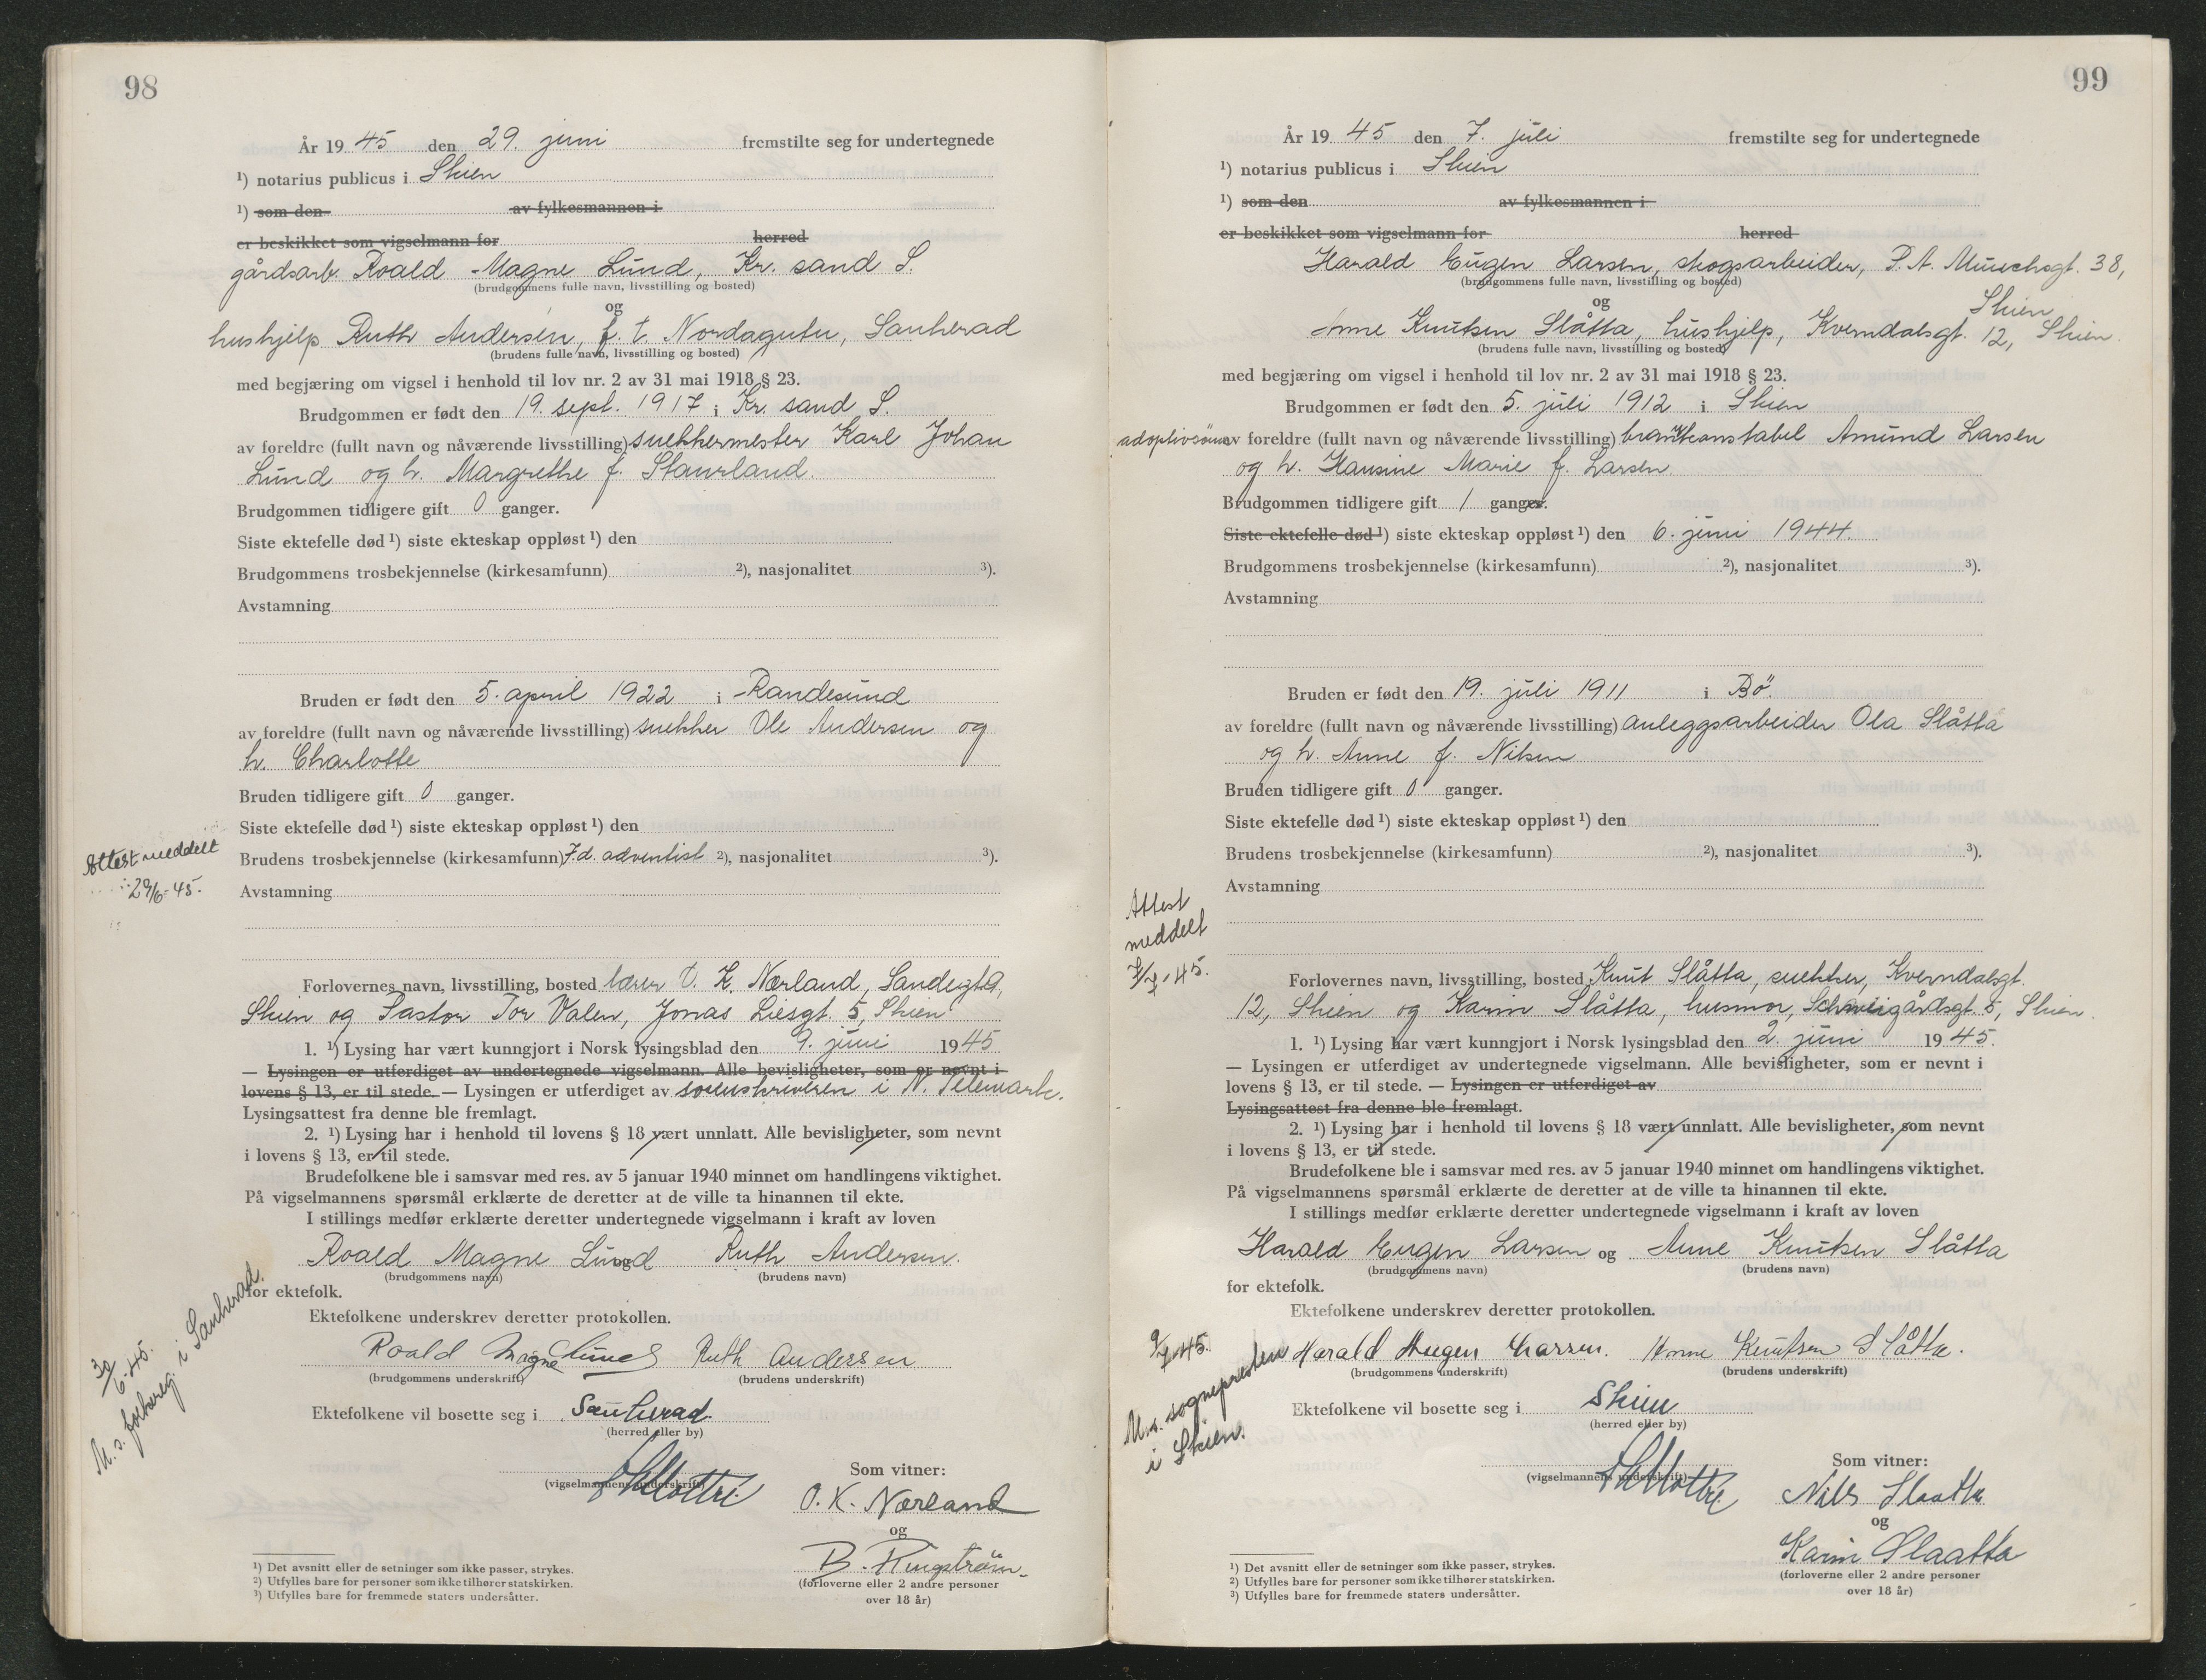 98
År 1945 den 29. juni fremstilte seg for undertegnede
¹) notarius publicus i Skien
¹) som den av fylkesmannen i
er beskikket som vigselmann for herred
gårdsarb. Roald Magne Lund, Kr. sand S.
(brudgommens fulle navn, livsstilling og bosted)
og
hushjelp Ruth Andersen, f. t. Nordagutu, Sauherad
(brudens fulle navn, livsstilling og bosted)
med begjæring om vigsel i henhold til lov nr. 2 av 31 mai 1918 § 23.
Brudgommen er født den 19. sept. 1917 i Kr. sand S.
av foreldre (fullt navn og nåværende livsstilling) snekkermester Karl Johan
Lund og h. Margrethe f. Staurland.
Brudgommen tidligere gift 0 ganger.
Siste ektefelle død ¹) siste ekteskap oppløst ¹) den
Brudgommens trosbekjennelse (kirkesamfunn) ²), nasjonalitet ³).
Avstamning
Bruden er født den 5. april 1922 i Randesund
av foreldre (fullt navn og nåværende livsstilling) snekker Ole Andersen og
h. Charlotte
Bruden tidligere gift 0 ganger.
Siste ektefelle død ¹) siste ekteskap oppløst ¹) den
Attest meddelt
29/6-45.
Brudens trosbekjennelse (kirkesamfunn) 7.d. adventist ²), nasjonalitet ³).
Avstamning
Forlovernes navn, livsstilling, bosted lærer O. K. Nærland, Sandegt
Skien og Pastor Tor Valen, Jonas Liesgt. 5, Skien
1. ¹) Lysing har vært kunngjort i Norsk lysingsblad den 9. juni 1945
— Lysingen er utferdiget av undertegnede vigselmann. Alle bevisligheter, som er nevnt i
lovens § 13, er til stede. — Lysingen er utferdiget av sorenskriveren i N. Telemark.
Lysingsattest fra denne ble fremlagt.
2. ¹) Lysing har i henhold til lovens § 18 vært unnlatt. Alle bevisligheter, som nevnt
i lovens § 13, er til stede.
Brudefolkene ble i samsvar med res. av 5 januar 1940 minnet om handlingens viktighet.
På vigselmannens spørsmål erklærte de deretter at de ville ta hinannen til ekte.
I stillings medfør erklærte deretter undertegnede vigselmann i kraft av loven
Roald Magne Lund og Ruth Andersen.
(brudgommens navn) (brudens navn)
for ektefolk.
Ektefolkene underskrev deretter protokollen.
Roald Magne Lund Ruth Andersen
(brudgommens underskrift) (brudens underskrift)
30/6-45.
M. s. folkereg. i Sauherad.
Ektefolkene vil bosette seg i Sauherad.
(herred eller by)
(vigselmannens underskrift)
Som vitner:
O. K. Nærland
og
B. Ringström
(forloverne eller 2 andre personer
over 18 år)
¹) Det avsnitt eller de setninger som ikke passer, strykes.
²) Utfylles bare for personer som ikke tilhører statskirken.
³) Utfylles bare for fremmede staters undersåtter.
99
År 1945 den 7. juli fremstilte seg for undertegnede
¹) notarius publicus i Skien
¹) som den av fylkesmannen i
er beskikket som vigselmann for herred
Harald Eugen Larsen, skogsarbeider, P. A. Munchsgt. 38,
Skien
(brudgommens fulle navn, livsstilling og bosted)
og
Anne Knutsen Slåtta, hushjelp, Kverndalsgt. 12, Skien.
(brudens fulle navn, livsstilling og bosted)
med begjæring om vigsel i henhold til lov nr. 2 av 31 mai 1918 § 23.
Brudgommen er født den 5. juli 1912 i Skien
adoptivsønn av foreldre (fullt navn og nåværende livsstilling) brannkonstabel Amund Larsen
og h. Hansine Marie f. Larsen.
Brudgommen tidligere gift 1 ganger.
Siste ektefelle død ¹) siste ekteskap oppløst ¹) den 6. juni 1944.
Brudgommens trosbekjennelse (kirkesamfunn) ²), nasjonalitet ³).
Avstamning
Bruden er født den 19. juli 1911 i Bö.
av foreldre (fullt navn og nåværende livsstilling) anleggsarbeider Ola Slåtta
og h. Anne f. Nilsen
Bruden tidligere gift 0 ganger.
Siste ektefelle død ¹) siste ekteskap oppløst ¹) den
Brudens trosbekjennelse (kirkesamfunn) ²), nasjonalitet ³).
Avstamning
Attest
meddelt
7/7-45.
Forlovernes navn, livsstilling, bosted Knut Slåtta, snekker, Kverndalsgt.
12, Skien og Karin Slåtta, husmor, Schweigårdsgt. 5, Skien.
1. ¹) Lysing har vært kunngjort i Norsk lysingsblad den 2. juni 1945.
— Lysingen er utferdiget av undertegnede vigselmann. Alle bevisligheter, som er nevnt i
lovens § 13, er til stede. — Lysingen er utferdiget av
Lysingsattest fra denne ble fremlagt.
2. ¹) Lysing har i henhold til lovens § 18 vært unnlatt. Alle bevisligheter, som nevnt
i lovens § 13, er til stede.
Brudefolkene ble i samsvar med res. av 5 januar 1940 minnet om handlingens viktighet.
På vigselmannens spørsmål erklærte de deretter at de ville ta hinannen til ekte.
I stillings medfør erklærte deretter undertegnede vigselmann i kraft av loven
Harald Eugen Larsen og Anne Knutsen Slåtta
(brudgommens navn) (brudens navn)
for ektefolk.
Ektefolkene underskrev deretter protokollen.
Harald Eugen Larsen. Anne Knutsen Slåtta.
(brudgommens underskrift) (brudens underskrift)
9/7-45.
M. s. sognepresten
i Skien.
Ektefolkene vil bosette seg i Skien
(herred eller by)
(vigselmannens underskrift)
Som vitner:
Nils Slaatta
og
Karin Slaatta
(forloverne eller 2 andre personer
over 18 år)
¹) Det avsnitt eller de setninger som ikke passer, strykes.
²) Utfylles bare for personer som ikke tilhører statskirken.
³) Utfylles bare for fremmede staters undersåtter.